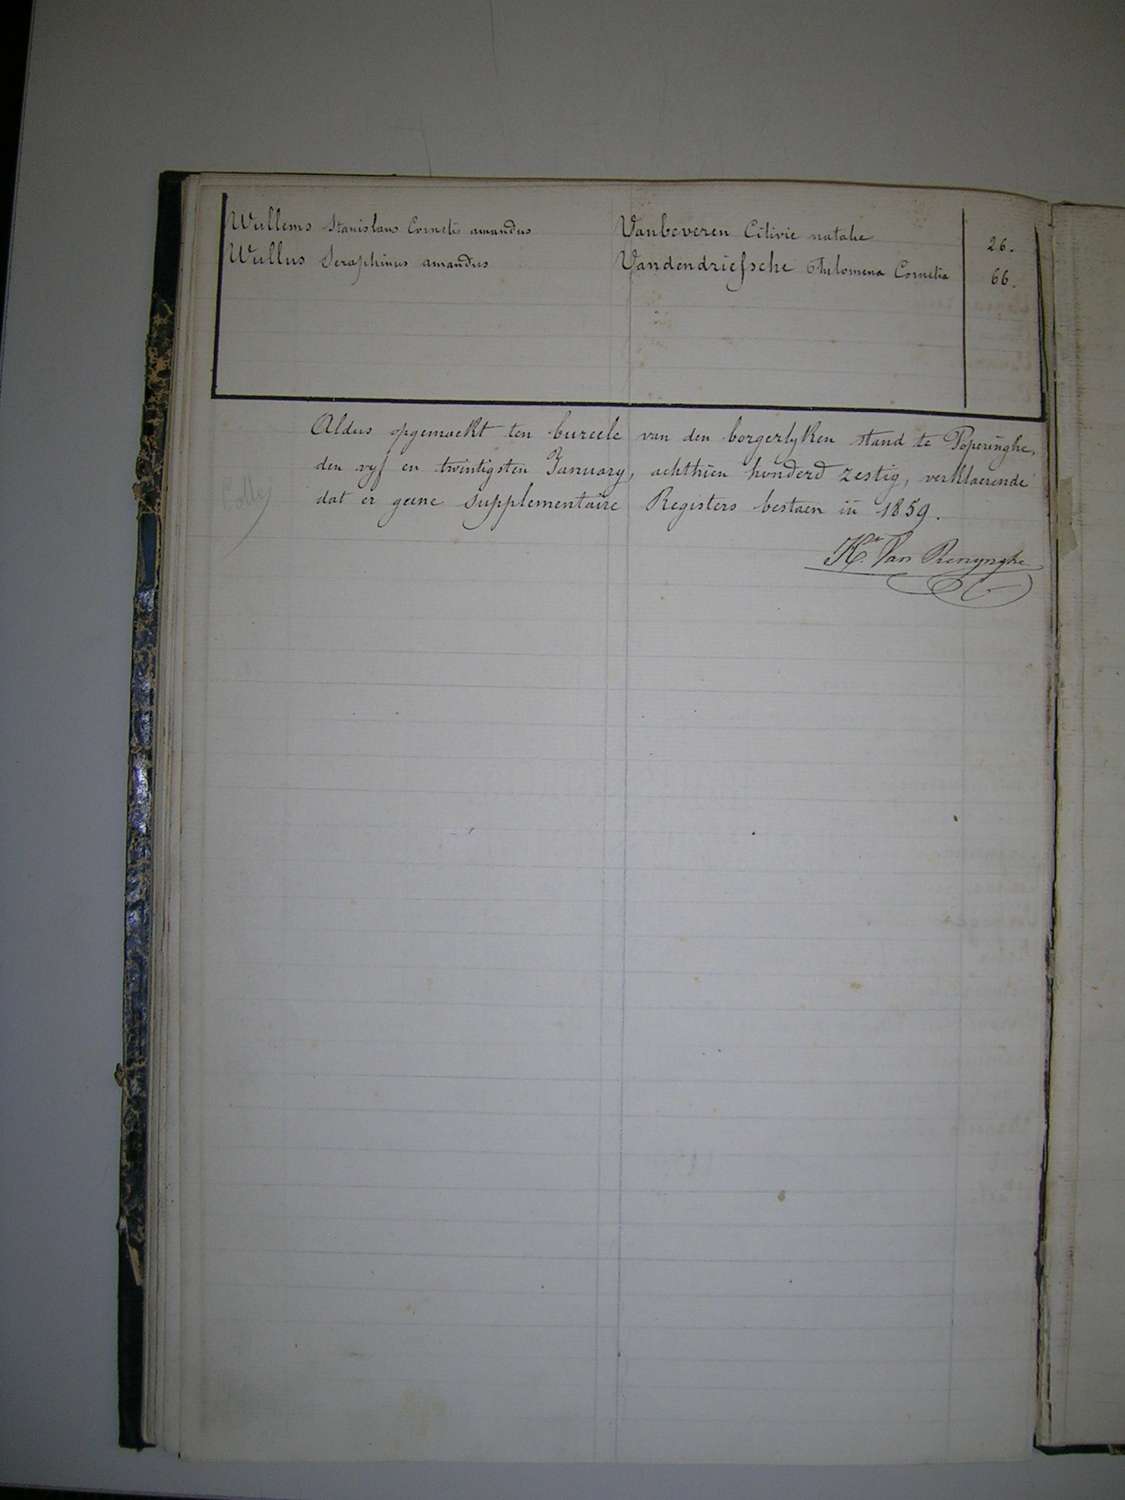 Willems Stanislaus Cornelis amandus Vanbeveren Citivie natalie 26.
Wullus Seraphinus amandus Vandendriessche Philomena Cornelia 66.
Aldus opgemaekt ten bureele van den borgerlyken stand te Poperinghe,
den vyf en twintigsten January, achthien honderd zestig, verklaerende
dat er geene supplementaire Registers bestaen in 1859.
Van Renynghe